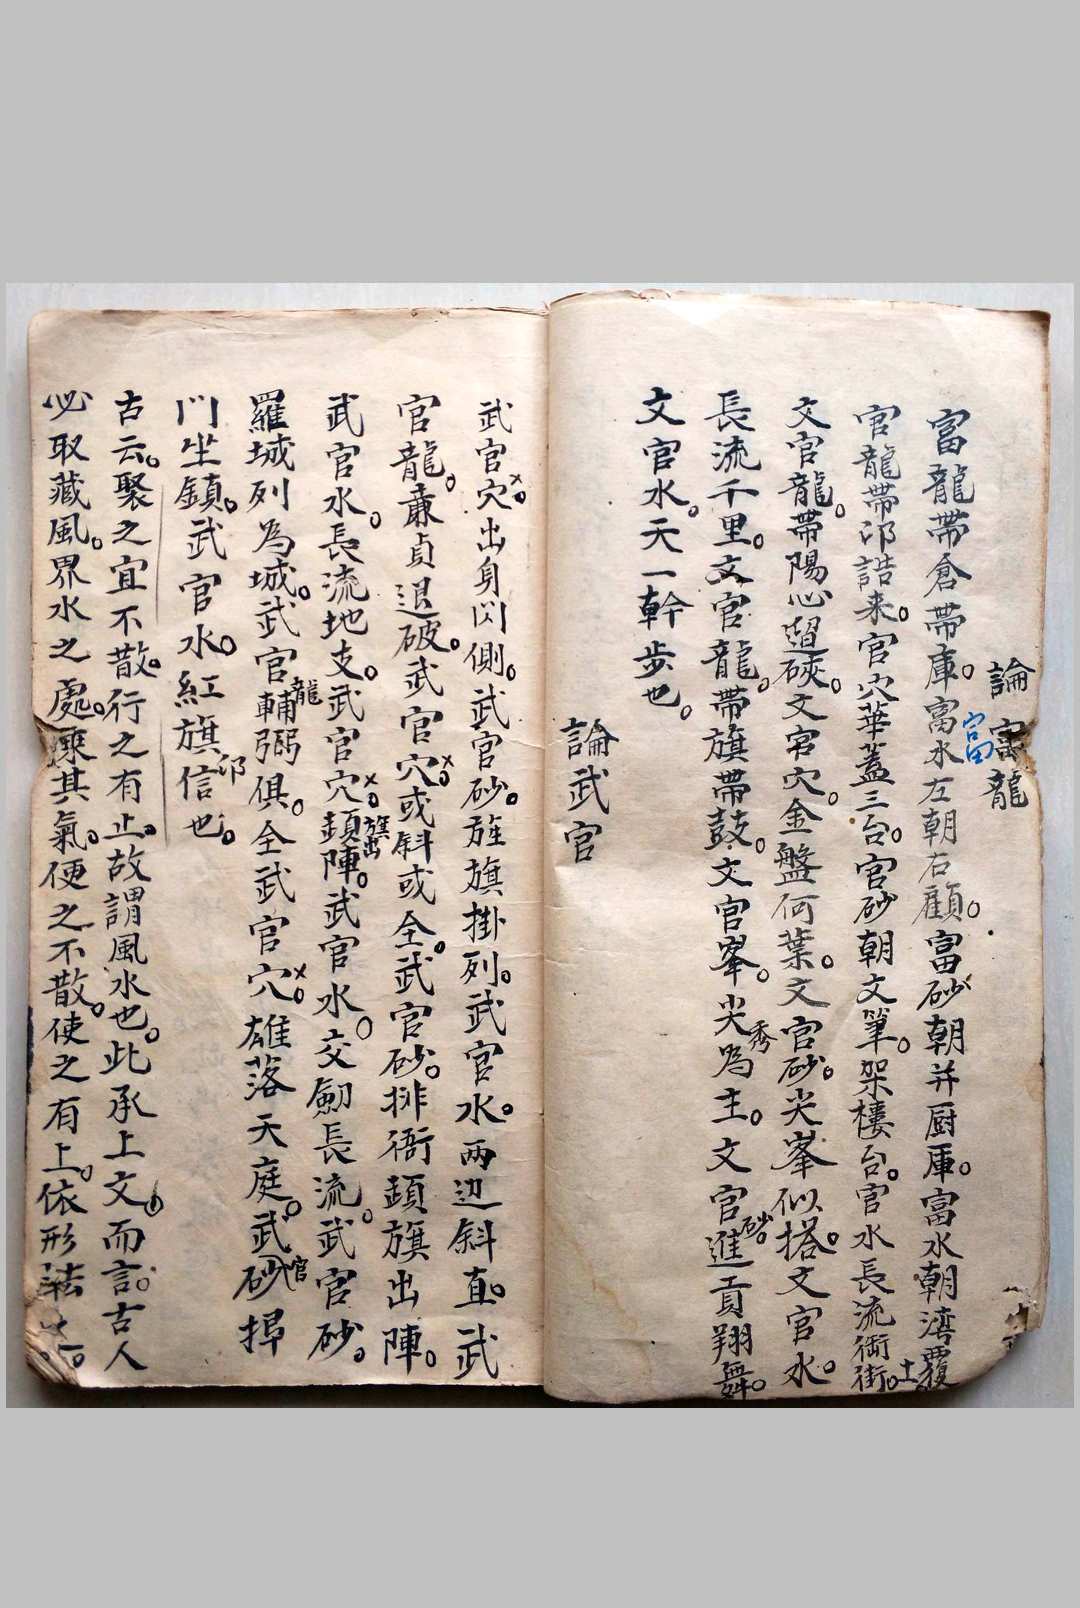 論富龍
富
富龍帶倉帶庫。富水左朝右顧。富砂朝并厨庫。富水朝湾覆
官龍帶印誥来。官穴華蓋三台。官砂朝文筆。架樓台。官水長流衙街。
文官龍。帶陽心過硤。文官穴。金盤何葉。文官砂。尖峯似搭。文官水。
長流千里。文官龍。帶旗帶鼓。文官峯。尖秀為主。文官砂進貢翔舞。
文官水。天一幹步也。
論武官
武官穴。出身閃側。武官砂。旌旗掛列。武官水。两边斜直。武
官龍。廉貞退破。武官穴。或斜或全。武官砂。排衙頓旗出陣。
武官水。長流地支。武官穴。頓旗出陣。武官水。交劍長流。武官砂。
羅城列為城。武官龍輔弼俱。全武官穴。雄落天庭。武官砂捍
門坐鎮。武官水。紅旗印信也。
古云。聚之宜不散。行之有止。故謂風水也。此承上文。而言。古人
必取藏風。界水之處。乘其氣。便之不散。使之有上。依形法